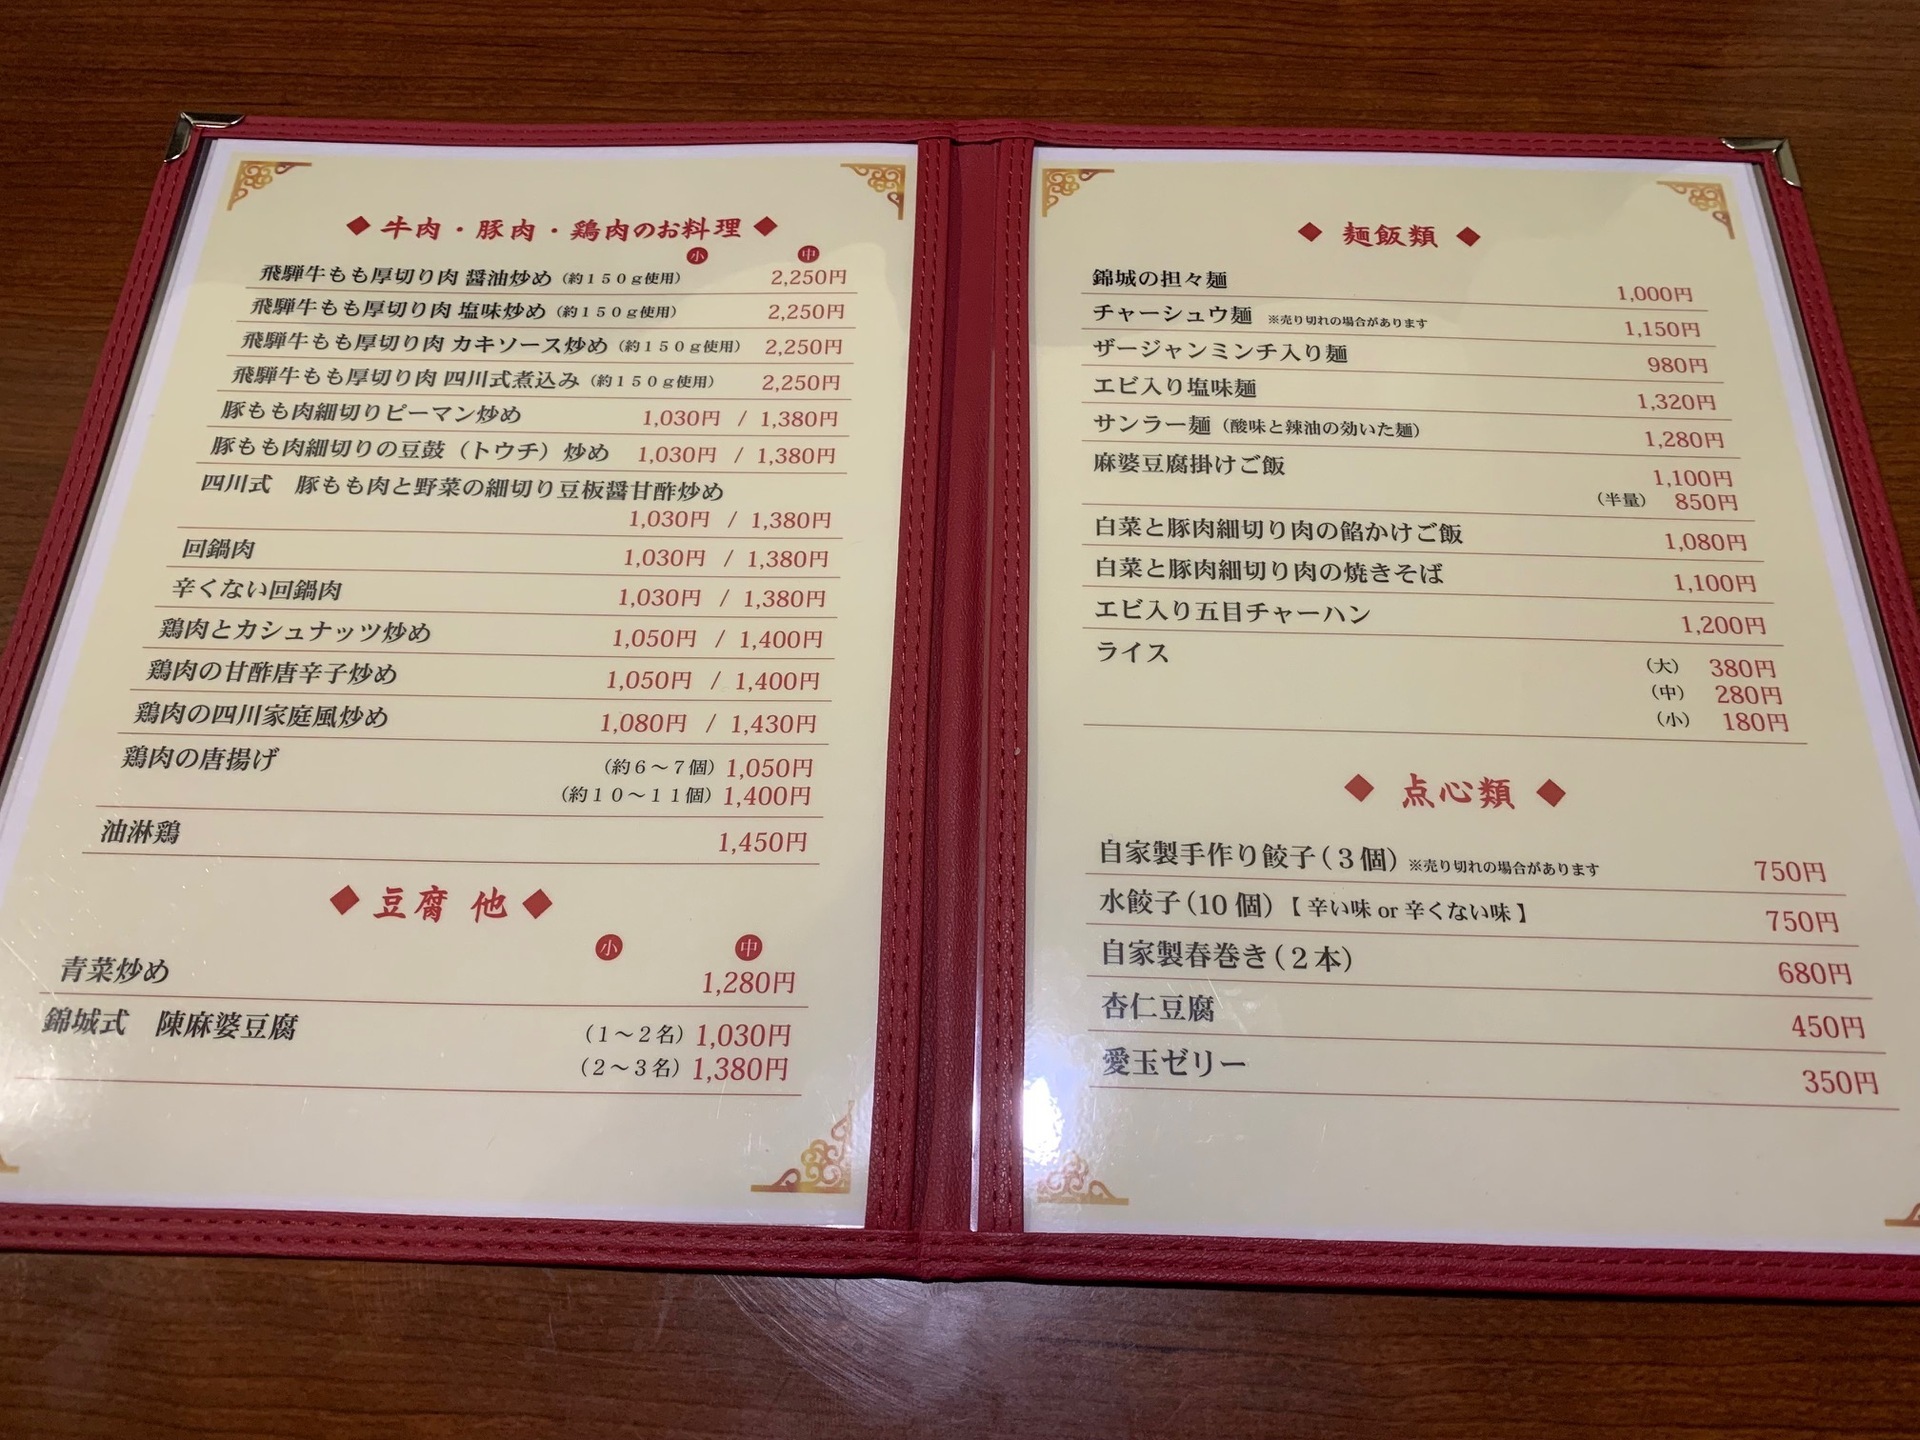 ◆ 牛肉・豚肉・鶏肉のお料理 ◆
小 中
飛騨牛もも厚切り肉 醤油炒め（約１５０ｇ使用） 2,250円
飛騨牛もも厚切り肉 塩味炒め（約１５０ｇ使用） 2,250円
飛騨牛もも厚切り肉 カキソース炒め（約１５０ｇ使用） 2,250円
飛騨牛もも厚切り肉 四川式煮込み（約１５０ｇ使用） 2,250円
豚もも肉細切りピーマン炒め 1,030円 / 1,380円
豚もも肉細切りの豆鼓（トウチ）炒め 1,030円 / 1,380円
四川式　豚もも肉と野菜の細切り豆板醤甘酢炒め
1,030円 / 1,380円
回鍋肉 1,030円 / 1,380円
辛くない回鍋肉 1,030円 / 1,380円
鶏肉とカシュナッツ炒め 1,050円 / 1,400円
鶏肉の甘酢唐辛子炒め 1,050円 / 1,400円
鶏肉の四川家庭風炒め 1,080円 / 1,430円
鶏肉の唐揚げ （約６～７個） 1,050円
（約１０～１１個） 1,400円
油淋鶏 1,450円
◆ 豆腐 他 ◆
小 中
青菜炒め 1,280円
錦城式　陳麻婆豆腐 （１～２名） 1,030円
（２～３名） 1,380円
◆ 麺飯類 ◆
錦城の担々麺 1,000円
チャーシュウ麺 ※売り切れの場合があります 1,150円
ザージャンミンチ入り麺 980円
エビ入り塩味麺 1,320円
サンラー麺（酸味と辣油の効いた麺） 1,280円
麻婆豆腐掛けご飯 1,100円
（半量） 850円
白菜と豚肉細切り肉の餡かけご飯 1,080円
白菜と豚肉細切り肉の焼きそば 1,100円
エビ入り五目チャーハン 1,200円
ライス （大） 380円
（中） 280円
（小） 180円
◆ 点心類 ◆
自家製手作り餃子（３個）※売り切れの場合があります 750円
水餃子（10 個）【 辛い味 or 辛くない味 】 750円
自家製春巻き（２本） 680円
杏仁豆腐 450円
愛玉ゼリー 350円